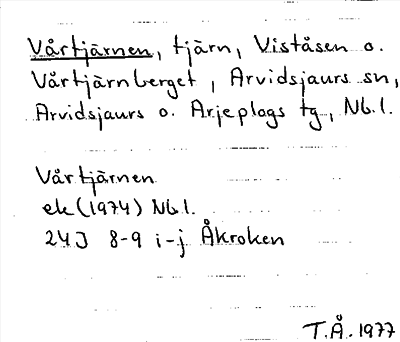 Vårtjärnen, tjärn, Viståsen o.
Vårtjärnberget, Arvidsjaurs sn,
Arvidsjaurs o. Arjeplogs tg, Nb.l.
Vårtjärnen
ek (1974) Nb.l.
24J 8-9 i-j Åkroken
T.Å. 1977